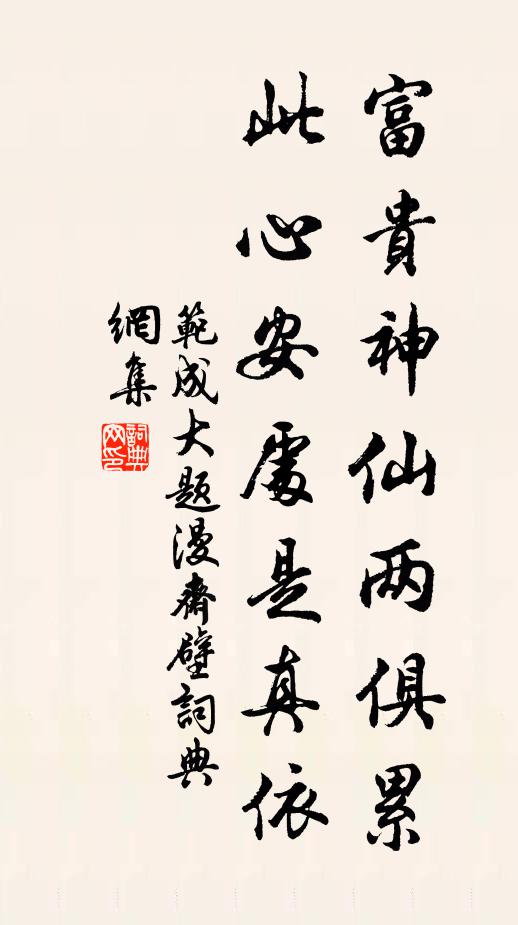 富貴神仙两俱累
此心安處是真依
範成大题漫齋壁詞典
網集
詞典
网印